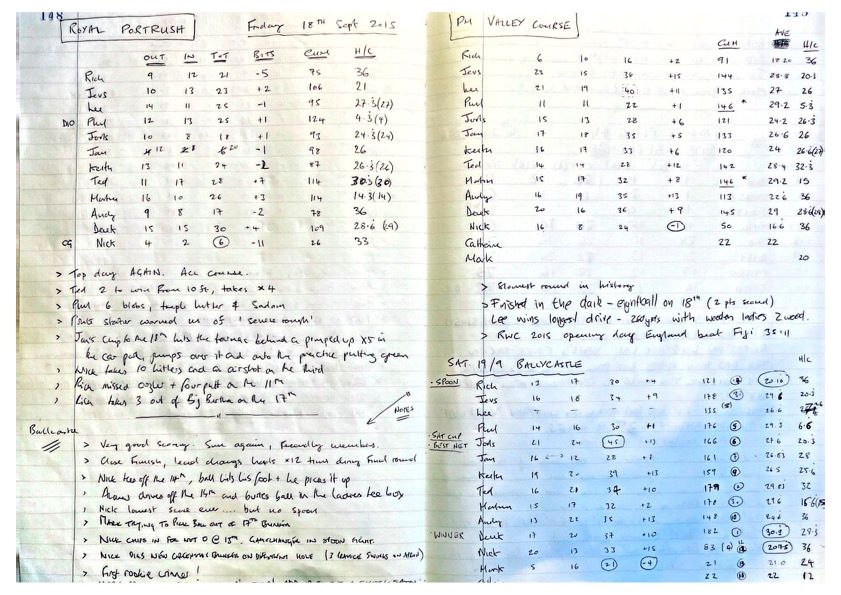 148
ROYAL PORTRUSH Friday 18TH Sept 2015
OUT IN TOT BITS CUM H/C
Rich 9 12 21 -5 75 36
Jevs 10 13 23 +2 106 21
Lee 14 11 25 -1 95 27.3 (27)
Phil 12 13 25 +1 124 4.3 (4)
Jords 10 8 18 +1 93 24.3 (24)
Jan 12 8 20 -1 98 26
Keith 13 11 24 -2 87 26.3 (26)
Ted 11 17 28 +7 114 30.3 (30)
Martin 16 10 26 +3 114 14.3 (14)
Andy 9 8 17 -2 78 36
Derek 15 15 30 +4 109 28.6 (29)
Nick 4 2 6 -11 26 33
> Top day AGAIN. Ace course.
> Ted 2 to win from 10ft, takes x4
> Phil 6 blobs, temple hitler & Sadam
> starter warned us of 'severe rough'
> Jan's chip to the 18th hits the tarmac behind a pimped up X5 in
the car park, jumps over it and onto the practice putting green
> Nick takes 10 hitters and an airshot on the third
> Rich missed + four putt on the 11th
> Rich takes 3 out of Big Bertha on the 17th
NOTES
Ballycastle
> Very good scoring. Sun again, friendly members.
> Close finish, lead changes hands x12 times during final round
> Nick tees off the 14th, ball hits his foot + he picks it up
> drives off the 14th and buries ball in the ladies tee box
> Nick lowest score ever.... but no spoon
> MARK TRYING TO PICK BALL OUT OF 17TH BUNKER
> NICK CHIPS IN FOR NOT 0 @ 15TH. GAMECHANGER IN SPOON FIGHT.
> NICK DIGS NEW BUNKER ON DIFFERENT HOLE
> First rookie winner!
PM VALLEY COURSE
CUM AVE H/C
Rich 6 10 16 +2 91 18.20 36
Jevs 23 15 38 +15 144 28.8 20.3
Lee 21 19 40 +11 135 27 26
Phil 11 11 22 +1 146 * 29.2 5.3
Jords 15 13 28 +6 121 24.2 26.3
Jan 17 18 35 +5 133 26.6 26
Keith 16 17 33 +6 120 24 26.6 (27)
Ted 14 14 28 +12 142 28.4 32.3
Martin 15 17 32 +8 146 * 29.2 15
Andy 16 19 35 +13 113 22.6 36
Derek 20 16 36 +9 145 29 28.6 (29)
Nick 16 8 24 -1 50 16.6 36
Catherine 22 22
Mark 20
> Slowest round in history
> Finished in the dark - eightball on 18th (2 pts scored)
Lee wins longest drive - 260yds with wooden ladies 2 wood.
> RWC 2015 opening day England beat Fiji 35:11
SAT. 19/9 BALLYCASTLE H/C
. SPOON Rich 13 17 30 +4 121 20.16 36
Jevs 16 18 34 +9 178 29.6 20.3
Lee - - - - 135 26.6
Phil 14 16 30 +1 176 29.3 6.6
. SAT CUP
. BEST NET Jords 21 24 45 +13 166 27.6 20.3
Jan 16 12 28 +2 161 26.83 28
Keith 19 20 39 +13 159 26.5 25.6
Ted 16 21 37 +10 179 29.83 32
Martin 15 17 32 +2 178 29.6
Andy 13 22 35 +13 148 36
. WINNER Derek 17 20 37 +10 182 30.3 28.3
Nick 20 13 33 +15 83 20.75 36
Mark 5 16 21 -4 21 21.0 24
22 22 12